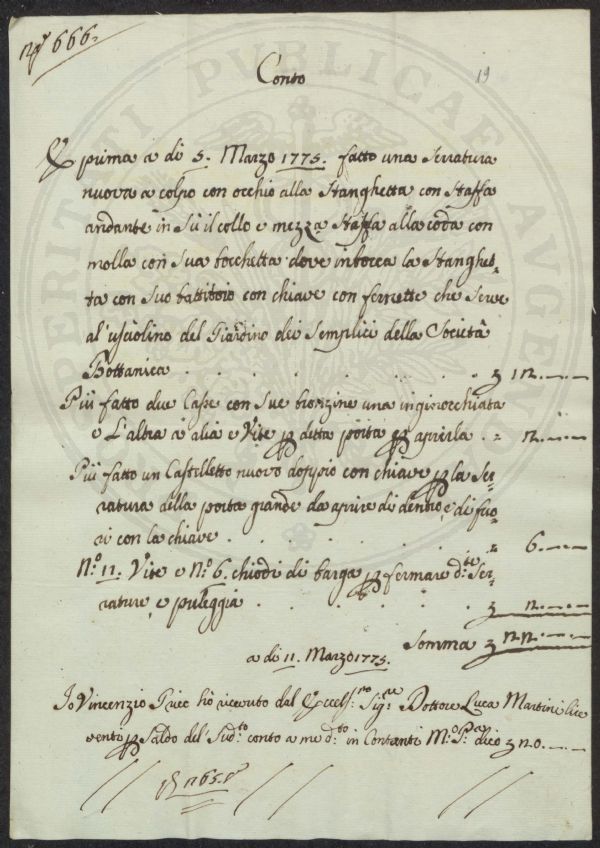 N.º 666.
19
Conto
E prima a di 5. Marzo 1775. fatto una Serratura
nuova a colpo con occhio alla Stanghetta con Staffa
andante in Sù il collo e mezza Staffa alla coda con
molla con Sua bocchetta dove imbocca la Stanghet-
ta con Suo battitoio con chiave con fernette che Serve
al'usciolino del Giardino dei Semplici della Società
Bottanica . . . . . . . . 12.--.--
Più fatto due Casse con Sue bronzine una inginocchiata
e L'altra a alia e Vite p ditta porta p aprirla . 2.--.--
Più fatto un Castelletto nuovo doppio con chiave p la Ser-
ratura della porta grande da aprire di dentro e di fuo-
ri con la chiave . . . . . . . 6.--.--
N.º 12. Vite e N.º 6. chiodi di barga p fermare d.te Ser-
rature e puleggia . . . . . . 2.--.--
Somma 22.--.--
a di 11. Marzo 1775.
Io Vincenzio Pucc hò ricevuto dal Eccell.mo Sig.re Dottore Luca Martini lire
venti p Saldo del' Sud.to conto a me d.to in Contanti M.º P.a dico 20.--.--
765.
PERITI PUBLICAE AUGENTO